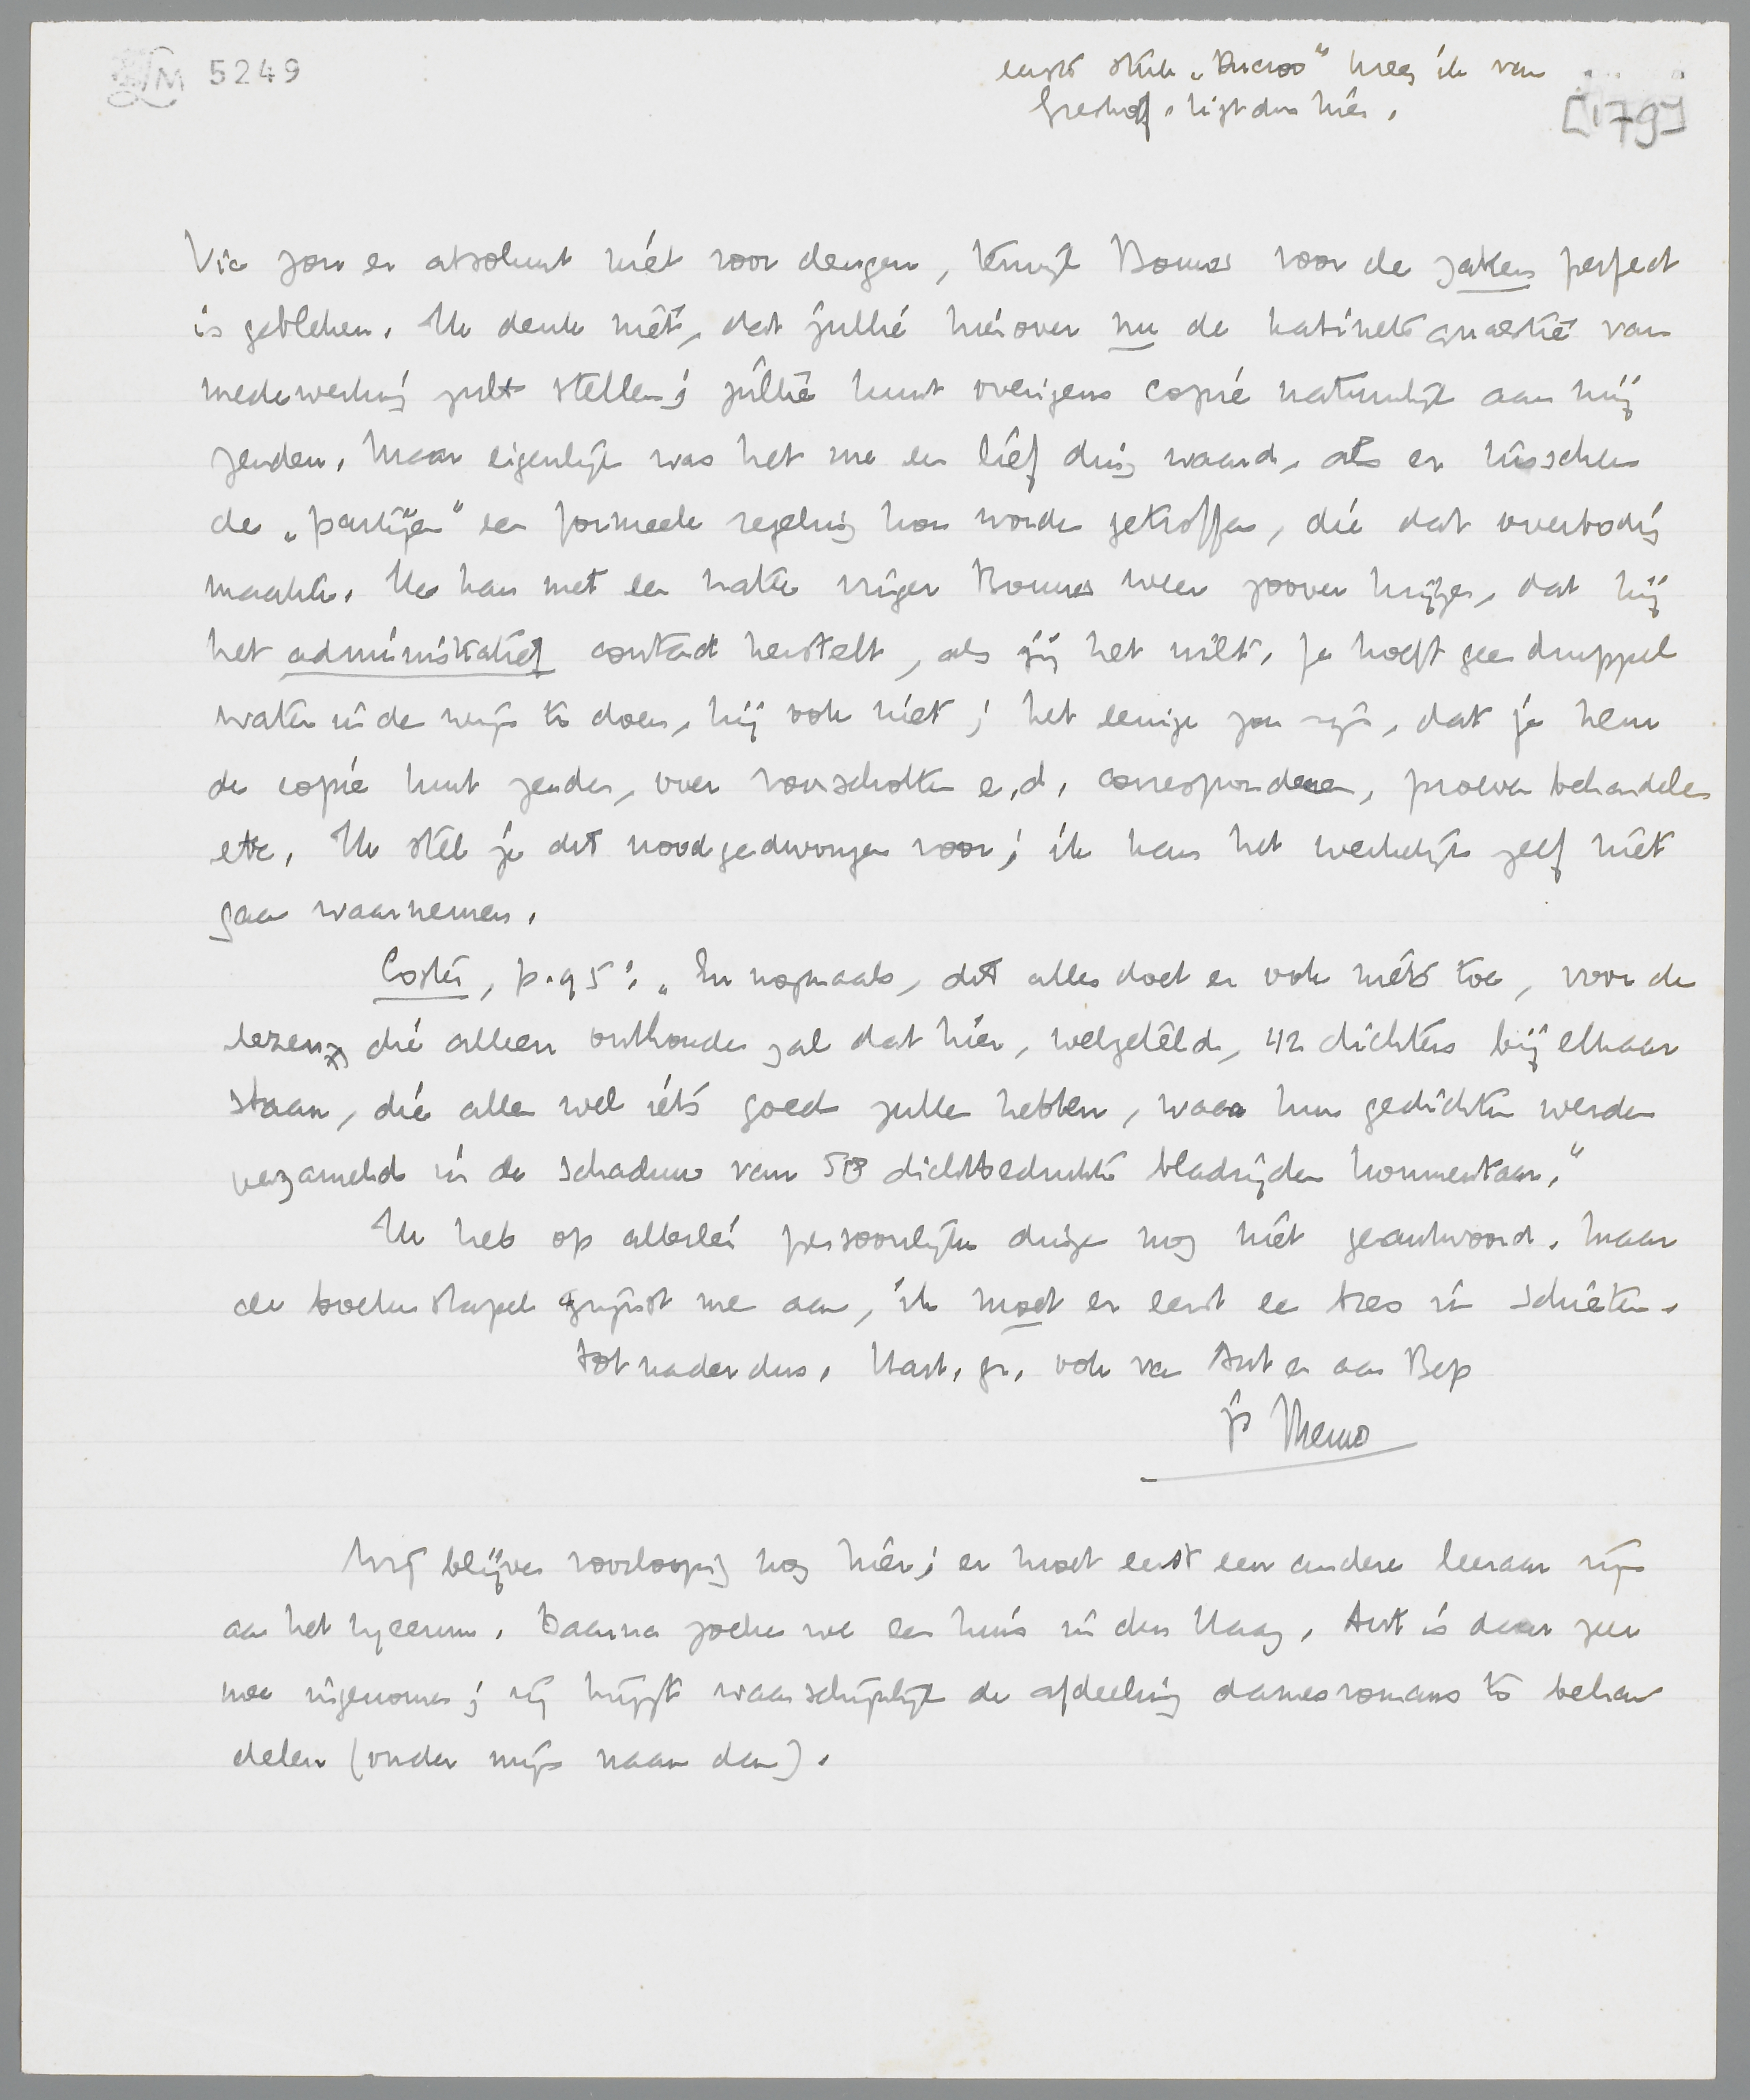 LM 5249
eerste stuk „Ducroo" kreeg ik van
Greshoff, ligt dus hier.
[179]
Vic zou er absoluut niet voor deugen, terwijl Bouws voor de zaken perfect
is gebleken. Ik denk niet, dat jullie hierover nu de kabinetsquaestie van
medewerking zult stellen; jullie kunt overigens copie natuurlijk aan mij
zenden. Maar eigenlijk was het me een lief ding waard, als er tusschen
de „partijen" een formeele regeling kon worden getroffen, die dat overbodig
maakte. We kan met een
het administratief contact herstelt, als jij het wilt. Je hoeft geen druppel
water in de wijn te doen, hij ook niet; het eenige zou zijn, dat je hem
de copie kunt zenden, over voorschotten e.d. correspondeeren, proeven behandelen
etc. Ik stel je dit noodgedwongen voor; ik kan het werkelijk zelf niet
gaan waarnemen.
Coster, p. 95: „En nogmaals, dit alles doet er ook niets toe, voor de
lezers, die alleen onthouden zal dat hier, welgeteld, 42 dichters bij elkaar
staan, die allen wel iets goed zullen hebben, waar hun gedichten werden
verzameld in de schaduw van 58 dichtbedrukte bladzijden kommentaar."
Ik heb op allerlei persoonlijke dingen nog niet geantwoord. Maar
de boekenstapel grijnst me aan, ik moet er eerst een bres in schieten.
Tot nader dus. Hart. gr. ook van Ant en aan Bep
je Menno
Wij blijven voorloopig nog hier; er moet eerst een andere leeraar zijn
aan het lyceum. Daarna zoeken we een huis in den Haag. Ant is daar zeer
mee ingenomen; zij krijgt waarschijnlijk de afdeeling damesromans te behan
delen (onder mijn naam dan).